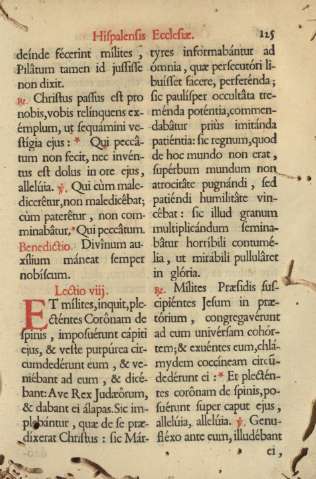 Hispalensis Ecclesiæ. 125
deínde fécerint mílites,
Pilâtum tamen id jussísse
non dixit.
℟. Christus passus est pro
nobis, vobis relínquens ex-
émplum, ut sequamini ve-
stígia ejus: * Qui peccâ-
tum non fecit, nec invén-
tus est dolus in ore ejus,
allelúia. ℣. Qui cùm male-
dicerêtur, non maledicêbat;
cùm paterêtur, non com-
minabâtur, * Qui peccâtum.
Benedictio. Divínum au-
xílium máneat semper
nobíscum.
Lectio viij.
ET mílites, inquit, ple-
cténtes Corônam de
spinis, imposuérunt cápiti
ejus, & veste purpúrea cir-
cumdedérunt eum, & ve-
niêbant ad eum, & dicé-
bant: Ave Rex Judæórum,
& dabant ei álapas. Sic im-
plebántur, quæ de se præ-
díxerat Christus: sic Már-
tyres informabántur ad
ómnia, quæ persecutóri li-
buísset fácere, perferénda;
sic paulísper occultâta tre-
ménda poténtia, commen-
dabâtur priùs imitánda
patiéntia: sic regnum, quod
de hoc mundo non erat,
supérbum mundum non
atrocitâte pugnándi, sed
patiéndi humilitâte vin-
cêbat: sic illud granum
multiplicándum semina-
bâtur horríbili contumé-
lia, ut mirábili pullulâret
in glória.
℟. Mílites Præsidis sus-
cipiéntes Jesum in præ-
tórium, congregavérunt
ad eum univérsam cohór-
tem; & exuéntes eum, chlá-
mydem coccíneam circū-
dedérunt ei: * Et plectén-
tes corônam de spinis, po-
suérunt super caput ejus,
allelúia, allelúia. ℣. Genu-
fléxo ante eum, illudébant
ei,